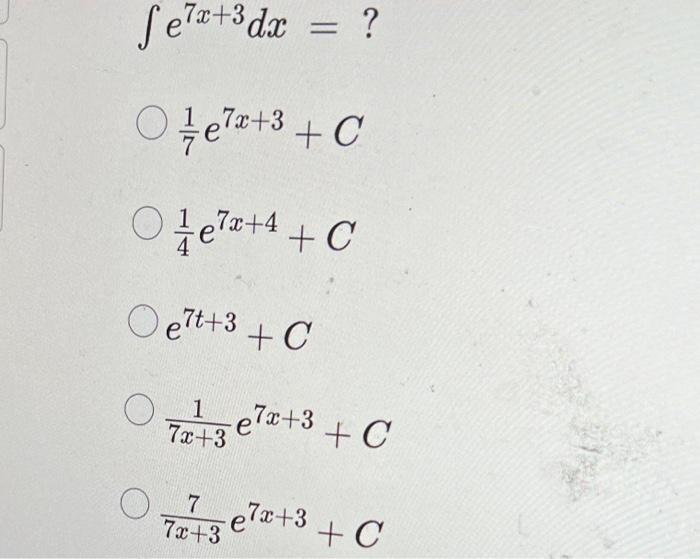 ∫e^{7x+3}dx = ?
○ \frac{1}{7}e^{7x+3} + C
○ \frac{1}{4}e^{7x+4} + C
○ e^{7t+3} + C
○ \frac{1}{7x+3}e^{7x+3} + C
○ \frac{7}{7x+3}e^{7x+3} + C